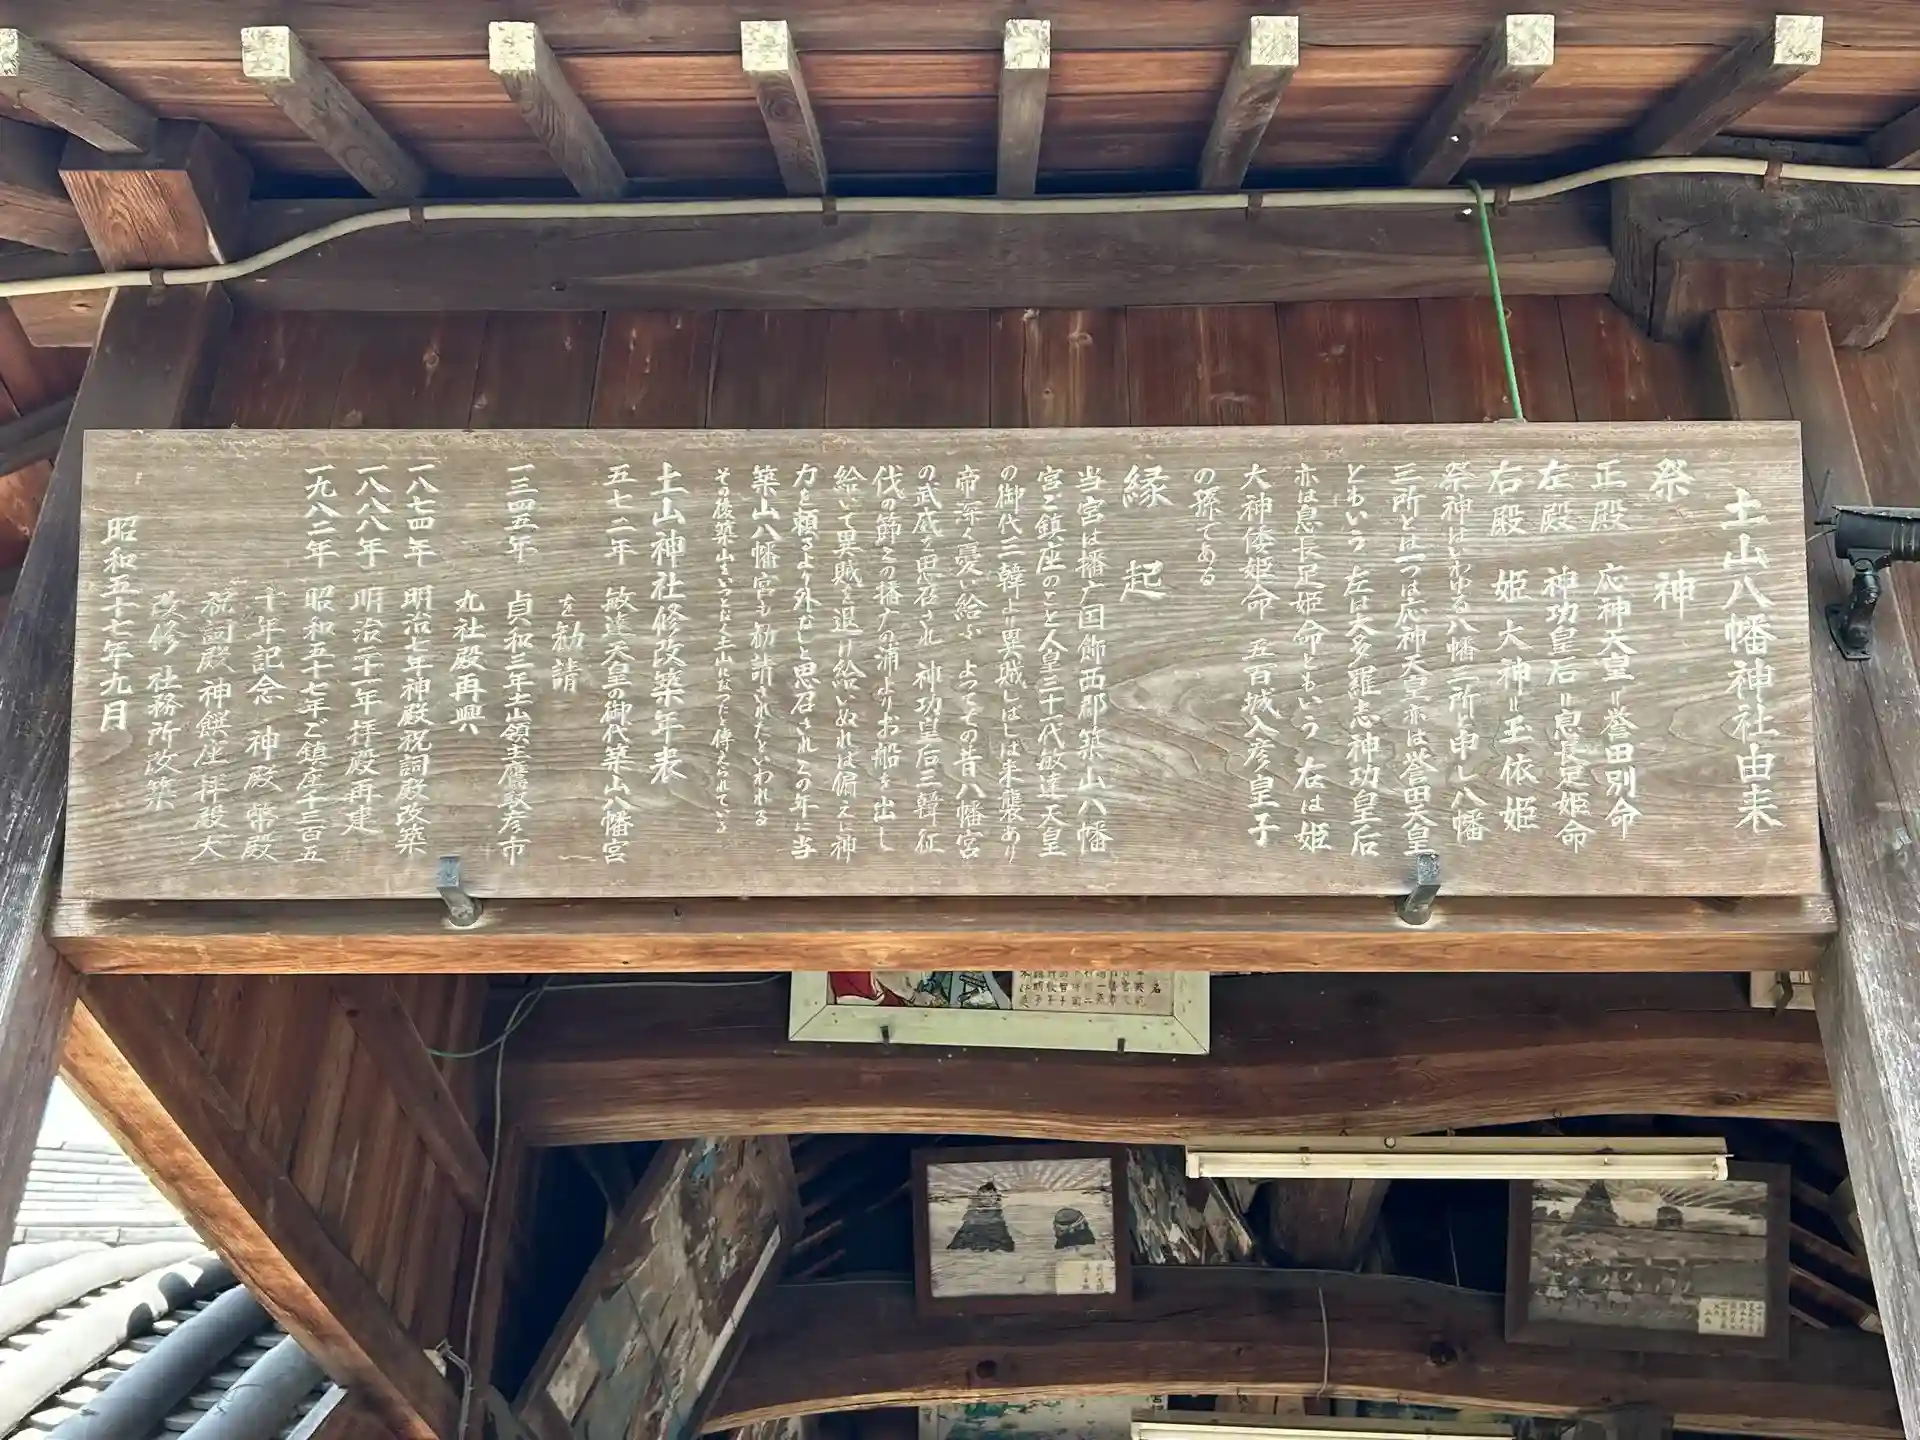 土山八幡神社由来
祭神
正殿 応神天皇＝誉田別命
左殿 神功皇后＝息長足姫命
右殿 姫大神＝玉依姫
祭神はいわゆる八幡一所と申し八幡
三所とは一つは応神天皇亦は誉田天皇
ともいう 左は大多羅志神功皇后
亦は息長足姫命ともいう 右は姫
大神倭姫命 五百城入彦皇子
の孫である
縁起
当宮は播广国飾西郡築山八幡
宮ご鎮座のこと人皇三十一代敏達天皇
の御代三韓より異賊しばしば来襲あり
帝深く憂い給ふ よってその昔八幡宮
の武威を思召され 神功皇后三韓征
伐の節この播广の浦よりお船を出し
給いて異賊を退け給いぬれば偏えに神
力を頼るより外なしと思召されこの年に当
築山八幡宮も勧請されたといわれる
その後築山をいつとなく土山になったと傳えられている
土山神社修改築年表
五七二年 敏達天皇の御代築山八幡宮
を勧請
一三四五年 貞和三年土山領主鷹取彦市
丸社殿再興
一八七四年 明治七年神殿祝詞殿改築
一八八八年 明治二十一年拝殿再建
一九八二年 昭和五十七年ご鎮座千三百五
十年記念 神殿 幣殿
祝詞殿 神饌座 拝殿大
改修 社務所改築
昭和五十七年九月